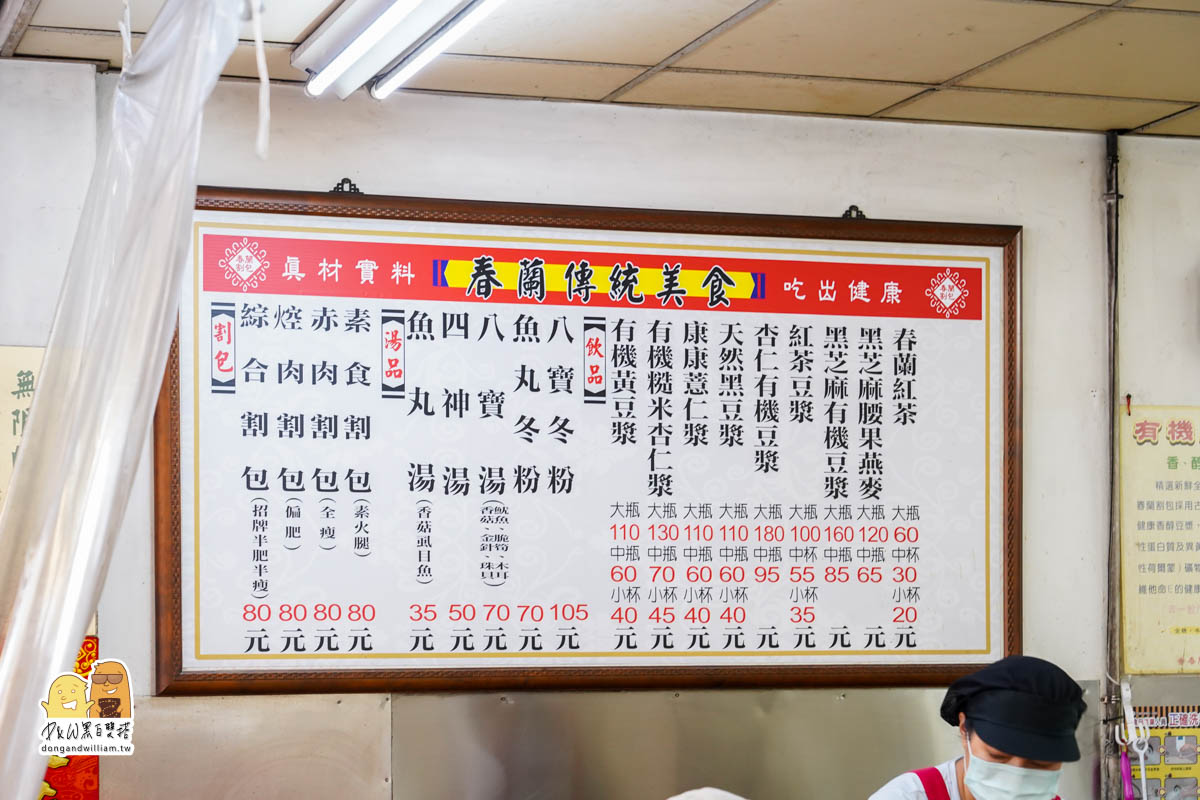 春蘭割包
眞材實料
春蘭傳統美食
吃出健康
春蘭割包
割包
綜合割包(招牌半肥半瘦) 80元
焢肉割包(偏肥) 80元
赤肉割包(全瘦) 80元
素食割包(素火腿) 80元
湯品
魚丸湯(香菇虱目魚) 35元
四神湯 50元
八寶湯(魷魚、脆筍、木耳、香菇、金針、珠貝) 70元
魚丸冬粉 70元
八寶冬粉 105元
飲品
有機黃豆漿 大瓶110 中瓶60 小杯40元
有機糙米杏仁漿 大瓶130 中瓶70 小杯45元
康康薏仁漿 大瓶110 中瓶60 小杯40元
天然黑豆漿 大瓶110 中瓶60 小杯40元
杏仁有機豆漿 大瓶180 中瓶95元
紅茶豆漿 大瓶100 中杯55 小杯35元
黑芝麻有機豆漿 大瓶160 中瓶85元
黑芝麻腰果燕麥 大瓶120 中瓶65元
春蘭紅茶 大瓶60 中杯30 小杯20元
無
有機
香‧醇
精選新鮮全
春蘭割包採用古
健康香醇豆漿，
性蛋白質及異黃
性荷爾蒙）礦物
維他命E的健康
D&W黑白雙搭
dongandwilliam.tw